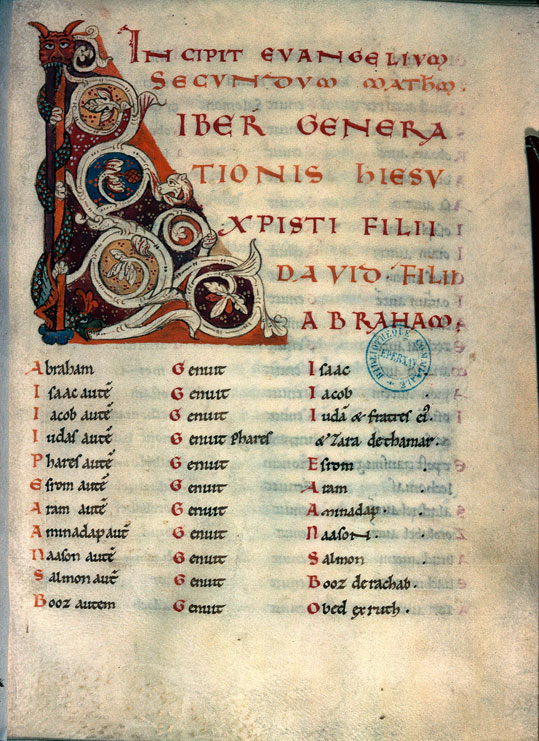 INCIPIT EVANGELIVM
SECVNDVM MATHM.
LIBER GENERA
TIONIS HIESV
XPISTI FILII
DAVID FILII
ABRAHAM;
Abraham Genuit Isaac
Isaac autē Genuit Iacob.
Iacob autē Genuit Iudā & fratres ei᾽.
Iudas autē Genuit Phares & Zara dethamar.
Phares autē Genuit Esrom
Esrom autē Genuit Aram
Aram autē Genuit Aminadap.
Aminadap autē Genuit Naason.
Naason autē Genuit Salmon
Salmon autē Genuit Booz derachab.
Booz autem Genuit Obed exruth.
BIBLIOTHEQUE COMMUNALE
EPERNAY